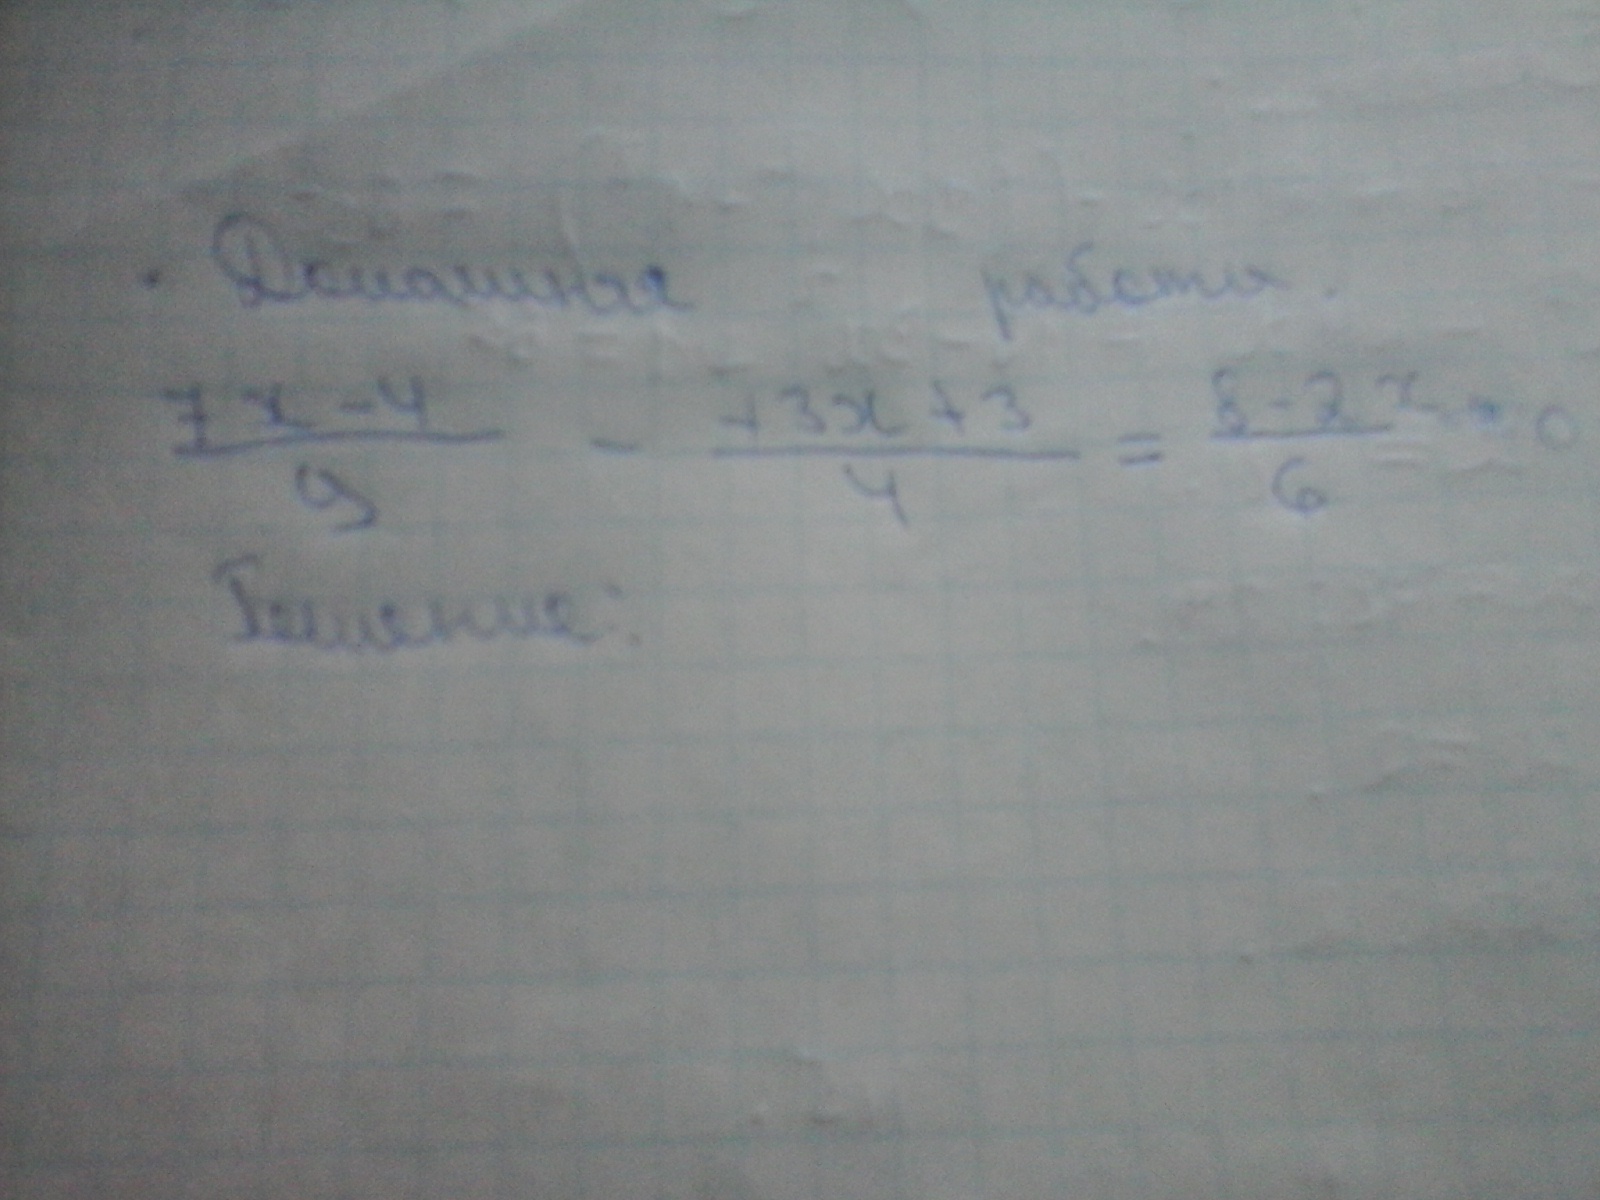 Домашняя работа.
7x-4 / 9 - +3x+3 / 4 = 8-2x / 6 = 0
Решение: